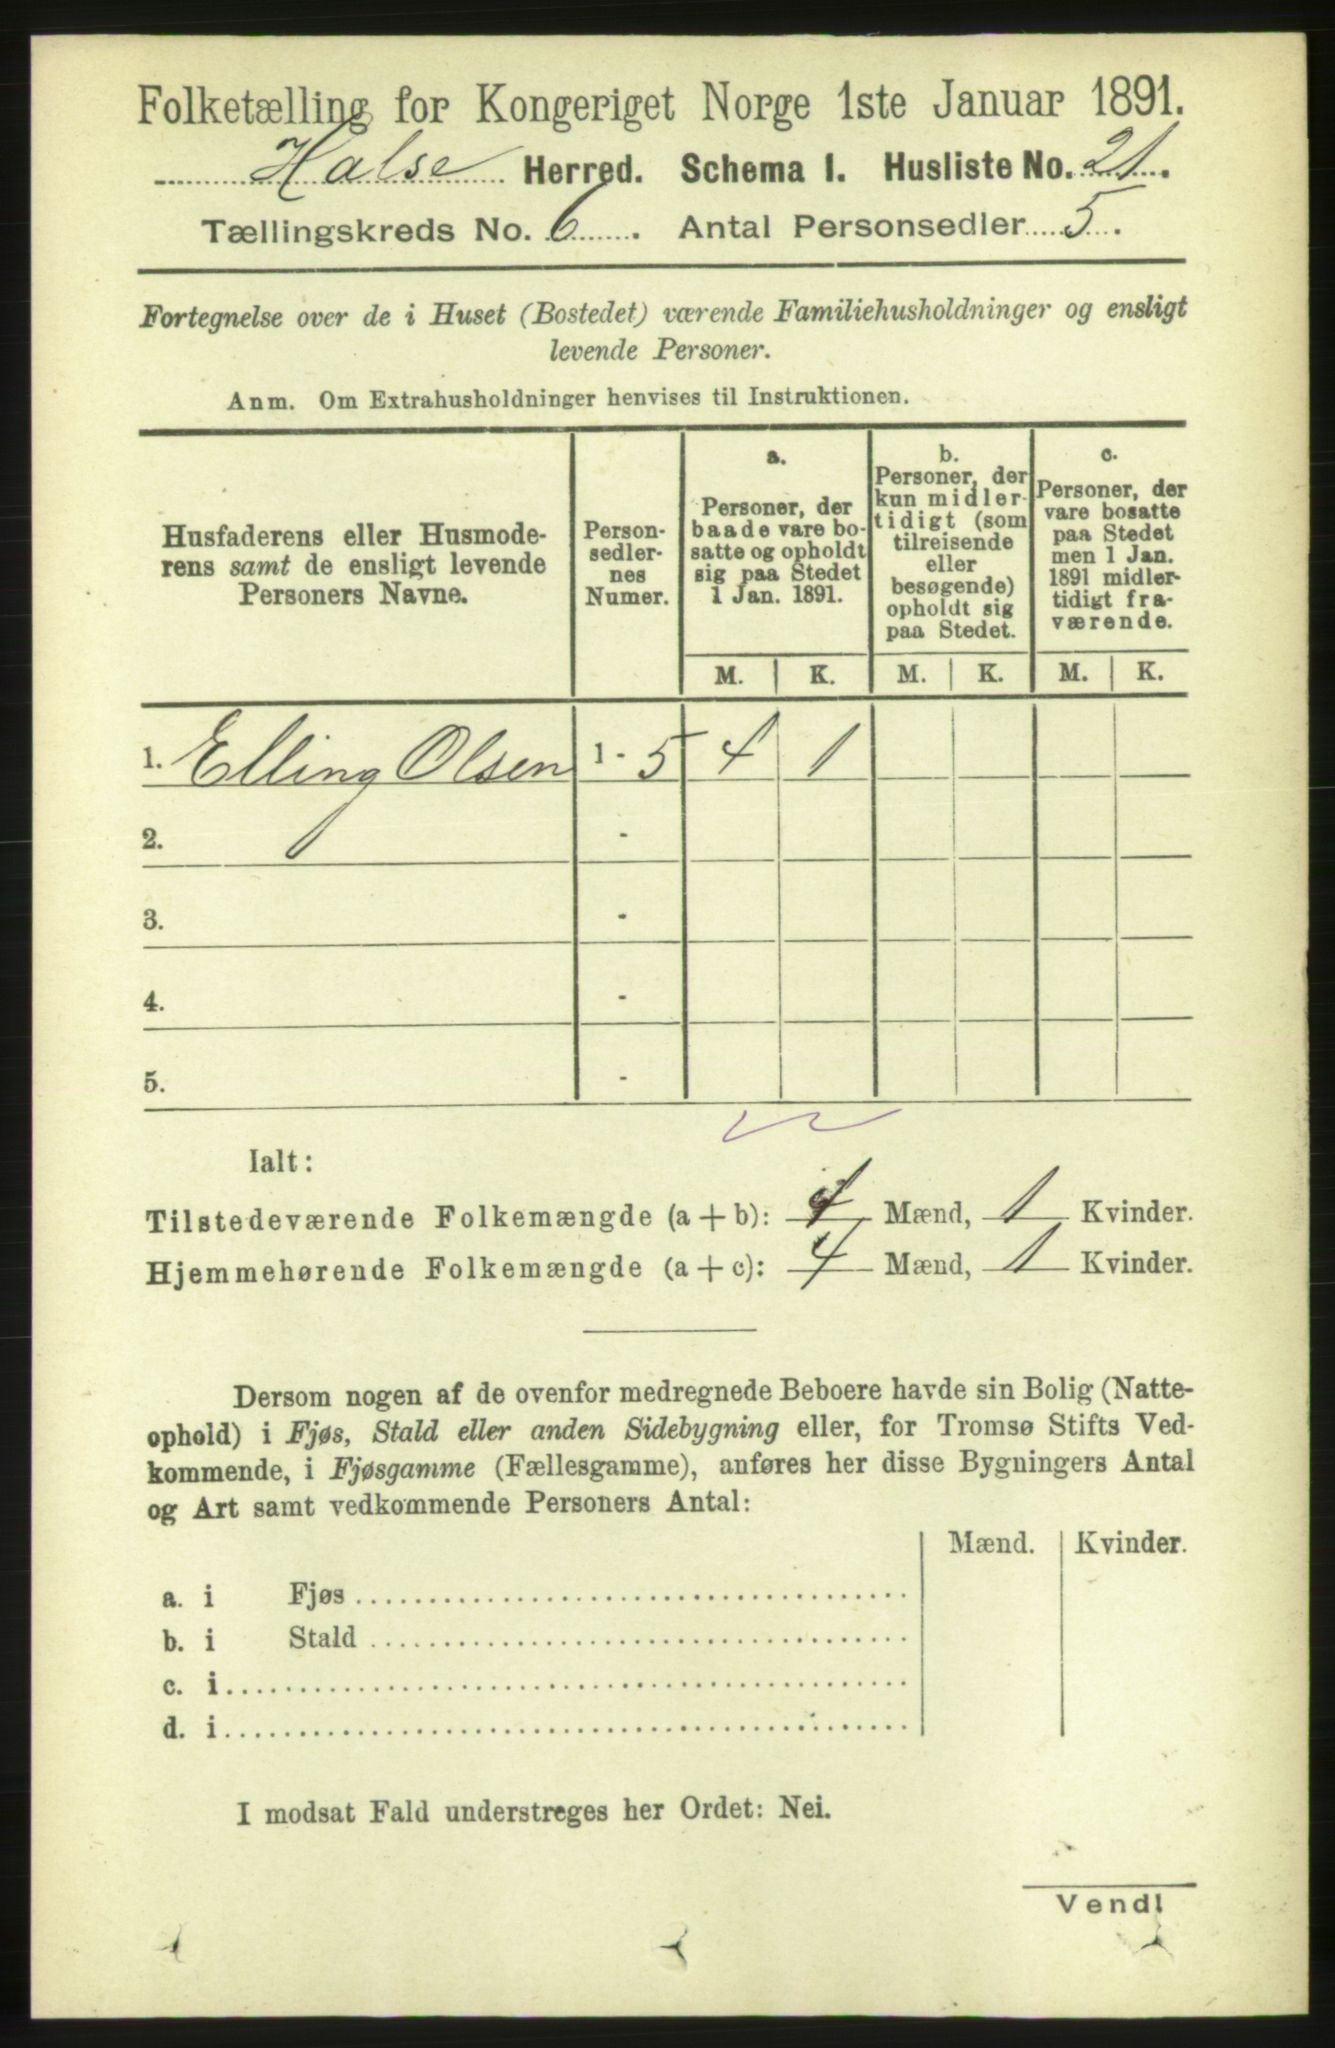 Folketælling for Kongeriget Norge 1ste Januar 1891.
Halse Herred. Schema I. Husliste No. 21.
Tællingskreds No. 6. Antal Personsedler 5.
Fortegnelse over de i Huset (Bostedet) værende Familiehusholdninger og ensligt
levende Personer.
Anm. Om Extrahusholdninger henvises til Instruktionen.
Husfaderens eller Husmode-
rens samt de ensligt levende
Personers Navne.
Person-
sedler-
nes
Numer.
a.
Personer, der
baade vare bo-
satte og opholdt
sig paa Stedet
1 Jan. 1891.
b.
Personer, der
kun midler-
tidigt (som
tilreisende
eller
besøgende)
opholdt sig
paa Stedet.
c.
Personer, der
vare bosatte
paa Stedet
men 1 Jan.
1891 midler-
tidigt fra-
værende.
M. K. M. K. M. K.
1. Elling Olsen 1 - 5 4 1
2. -
3. -
4. -
5. -
Ialt:
Tilstedeværende Folkemængde (a + b): 4 Mænd, 1 Kvinder.
Hjemmehørende Folkemængde (a + c): 4 Mænd, 1 Kvinder.
Dersom nogen af de ovenfor medregnede Beboere havde sin Bolig (Natte-
ophold) i Fjøs, Stald eller anden Sidebygning eller, for Tromsø Stifts Ved-
kommende, i Fjøsgamme (Fællesgamme), anføres her disse Bygningers Antal
og Art samt vedkommende Personers Antal:
Mænd. Kvinder.
a. i Fjøs
b. i Stald
c. i
d. i
I modsat Fald understreges her Ordet: Nei.
Vend!